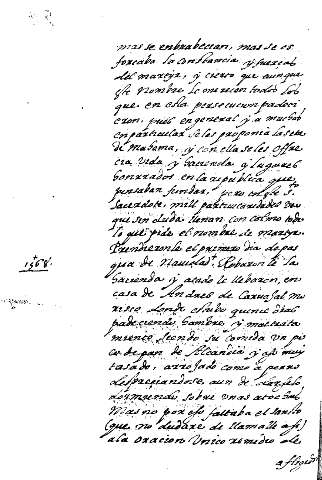 mas se enbrabecian, mas se es
forcaba la constancia y fuerças
del martyr, y cierto que aunque
este nombre le merecen todos los
que en esta persecucion padeci
eron, pues en general y a muchos
en particular se les proponia la seta
de Mahoma, y con ella se les offre
cia vida y hacienda y lugares
honrrados en la republica que
pensaban fundar, pero en este sto
Sacerdote, mill particularidades vuo
que sin duda llenan con colmo todo
lo que pide el nombre de martyr.
Prendieronle el primero dia de pas
qua de Nauidad, Robaronle la
1568.
hacienda y atado le lleboron, en
casa de Andres de Caruajal mo
risco, donde estubo quince dias
padeciendo hambre, y maltrata
miento, siendo su comida un po
co de pan de Alcandia y esso muy
tasado, arrojado como a perro
despreciandose, aun de darselo,
durmiendo sobre unas atochas
Mas no por esso faltaba el santo
(que no dudaré de llamalle assi)
a la oracion unico remedio de
afligidos